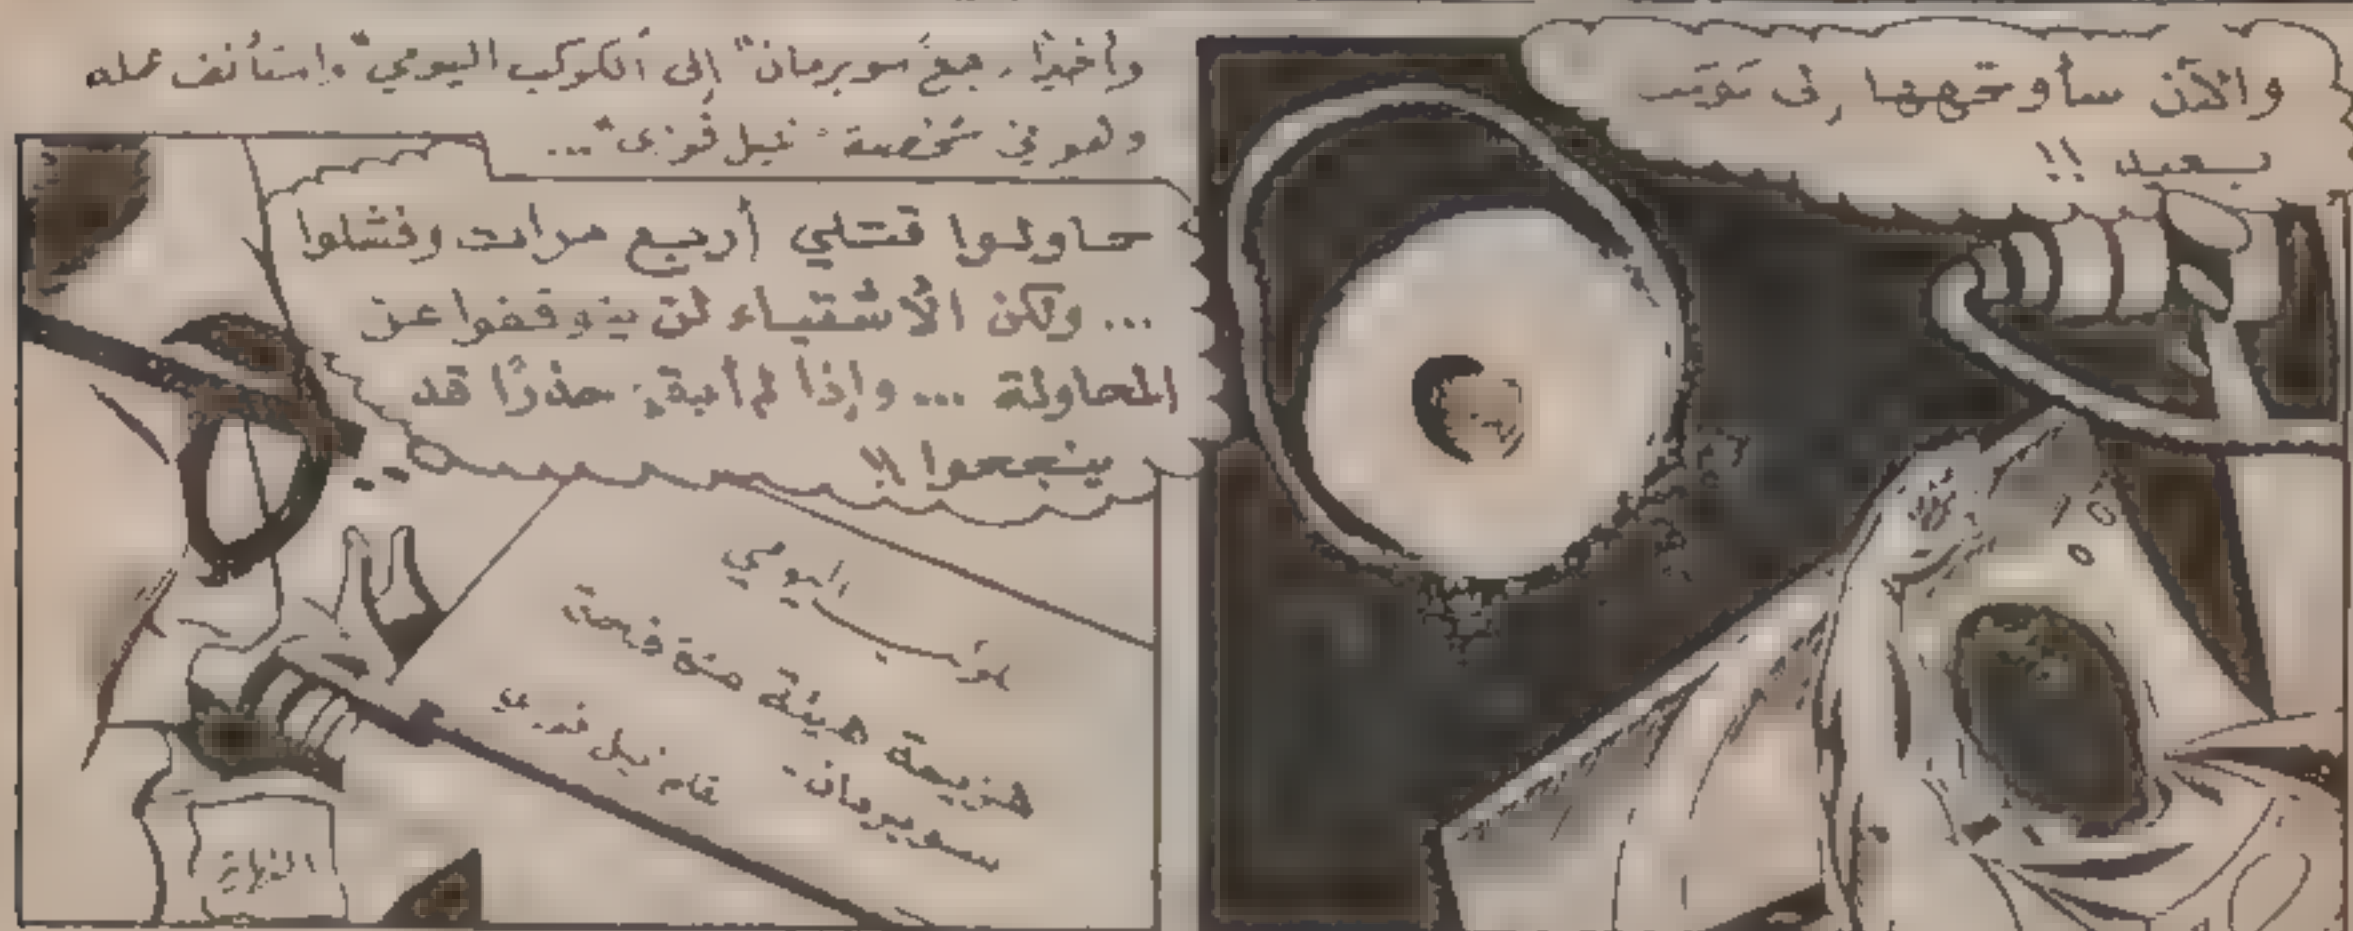 والآن سأوجهها إلى كوكب
بعيد !!
وأخيرًا رجع "سوبرمان" إلى "الكوكب اليومي" واستأنف عمله
وهو في شخصية "نبيل فوزي" ...
حاولوا قتلي أربع مرات وفشلوا
... ولكن الأشقياء لن يتوقفوا عن
المحاولة ... وإذا لم أبق حذرًا قد
ينجحوا !!
اليومي
هزيمة هيئة
سوبرمان
نبيل فوزي